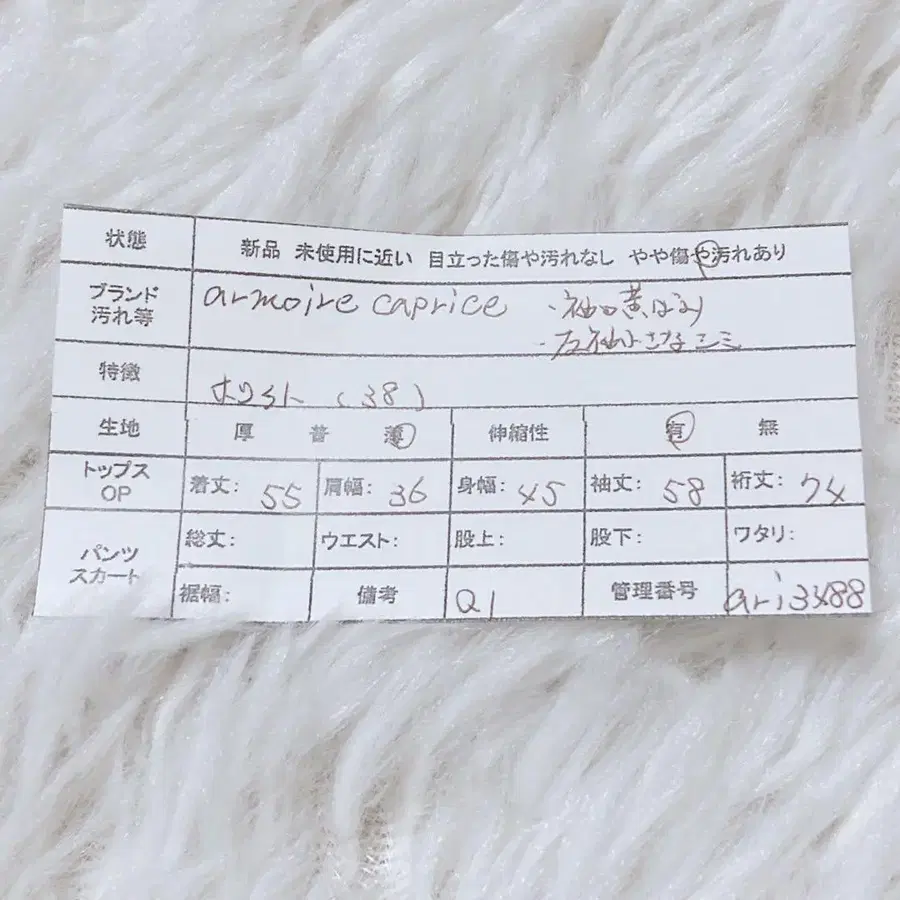 状態 新品 未使用に近い 目立った傷や汚れなし やや傷や汚れあり
ブランド 汚れ等 armoire caprice ・袖口黄ばみ
・左袖小さなシミ
特徴 ホワイト (38)
生地 厚 普 薄 伸縮性 有 無
トップス OP 着丈: 55 肩幅: 36 身幅: 45 袖丈: 58 裄丈: 74
パンツ スカート 総丈: ウエスト: 股上: 股下: ワタリ:
裾幅: 備考 Q1 管理番号 ari3488